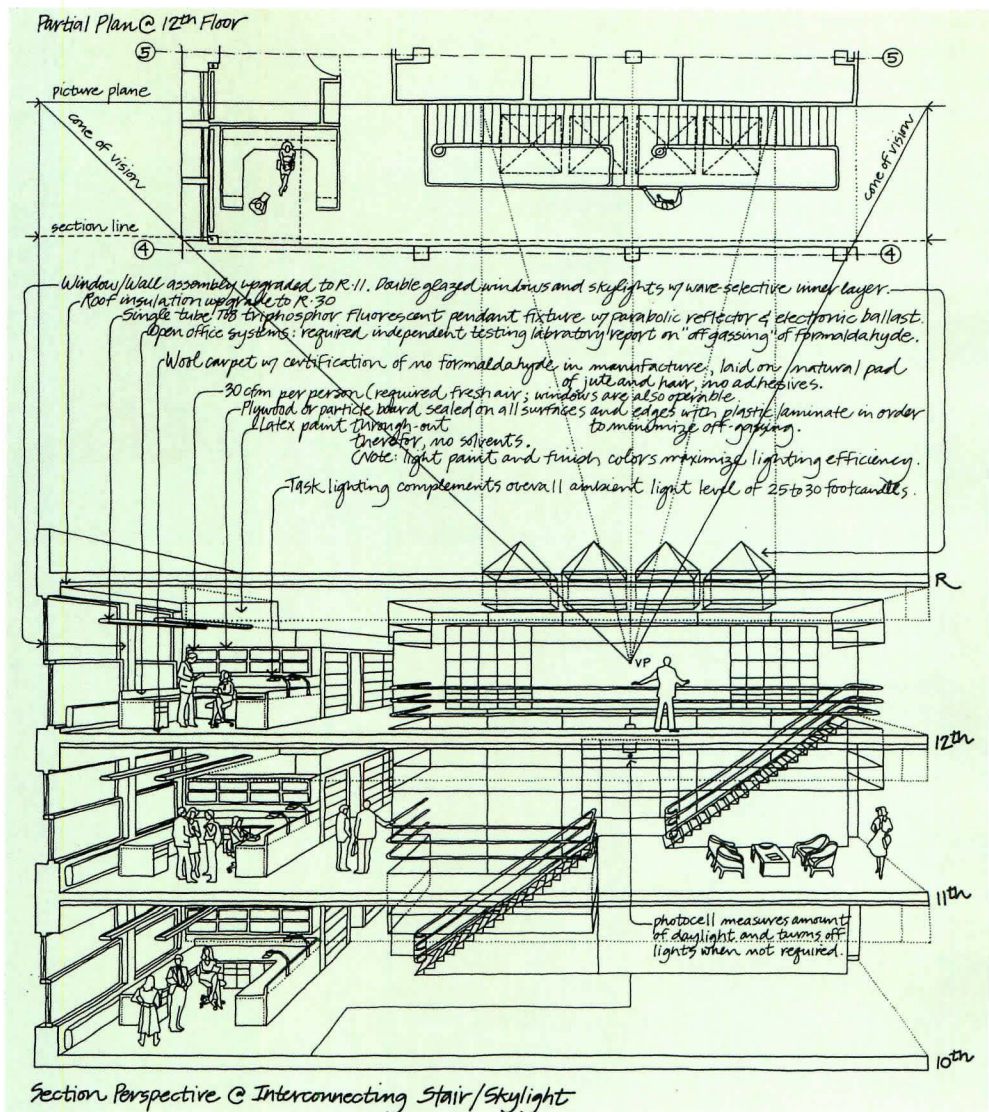 Partial Plan @ 12th Floor
5
5
picture plane
cone of vision
cone of vision
section line
4
4
Window/Wall assembly upgraded to R-11. Double glazed windows and skylights w/ wave-selective inner layer.
Roof insulation upgrade to R-30
Single tube T08 triphosphor fluorescent pendant fixture w/ parabolic reflector & electronic ballast.
Open office systems: required independent testing labratory report on "off gassing" of formaldahyde.
Wool carpet w/ certification of no formaldahyde in manufacture, laid on natural pad
of jute and hair, no adhesives.
30 cfm per person (required fresh air; windows are also operable.
Plywood or particle board sealed on all surfaces and edges with plastic laminate in order
to minimize off-gassing.
Latex paint through-out
therefor, no solvents.
(Note: light paint and finish colors maximize lighting efficiency.
Task lighting complements overall ambient light level of 25 to 30 footcandles.
R
VP
12th
11th
photocell measures amount
of daylight and turns off
lights when not required.
10th
Section Perspective @ Interconnecting Stair/Skylight